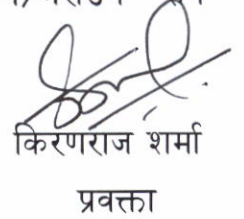 किरणराज शर्मा
प्रवक्ता